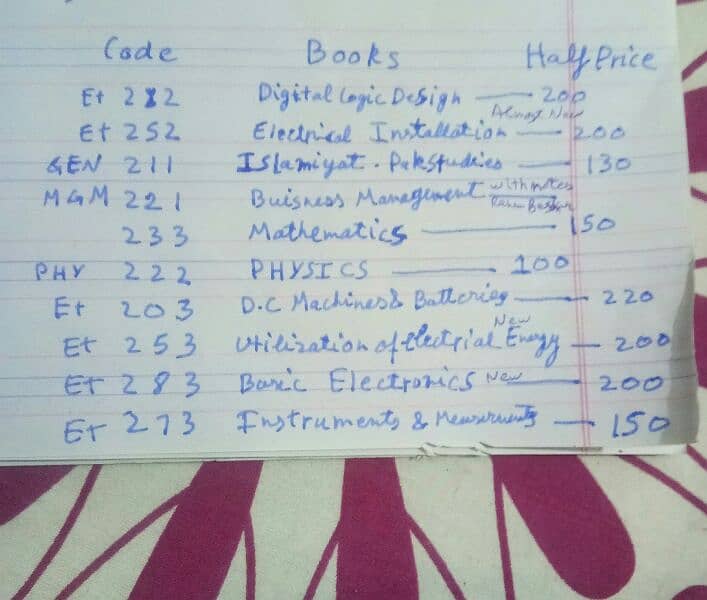 Code Books Half Price
Et 282 Digital Logic Design — 200
Almost New
Et 252 Electrical Installation — 200
GEN 211 Islamiyat . Pakstudies — 130
MGM 221 Buisness Management with notes
233 Mathematics — 150
PHY 222 PHYSICS — 100
Et 203 D.C Machines & Batteries — 220
New
Et 253 Utilization of Electrial Energy — 200
Et 283 Basic Electronics New — 200
Et 273 Instruments & Measurements — 150